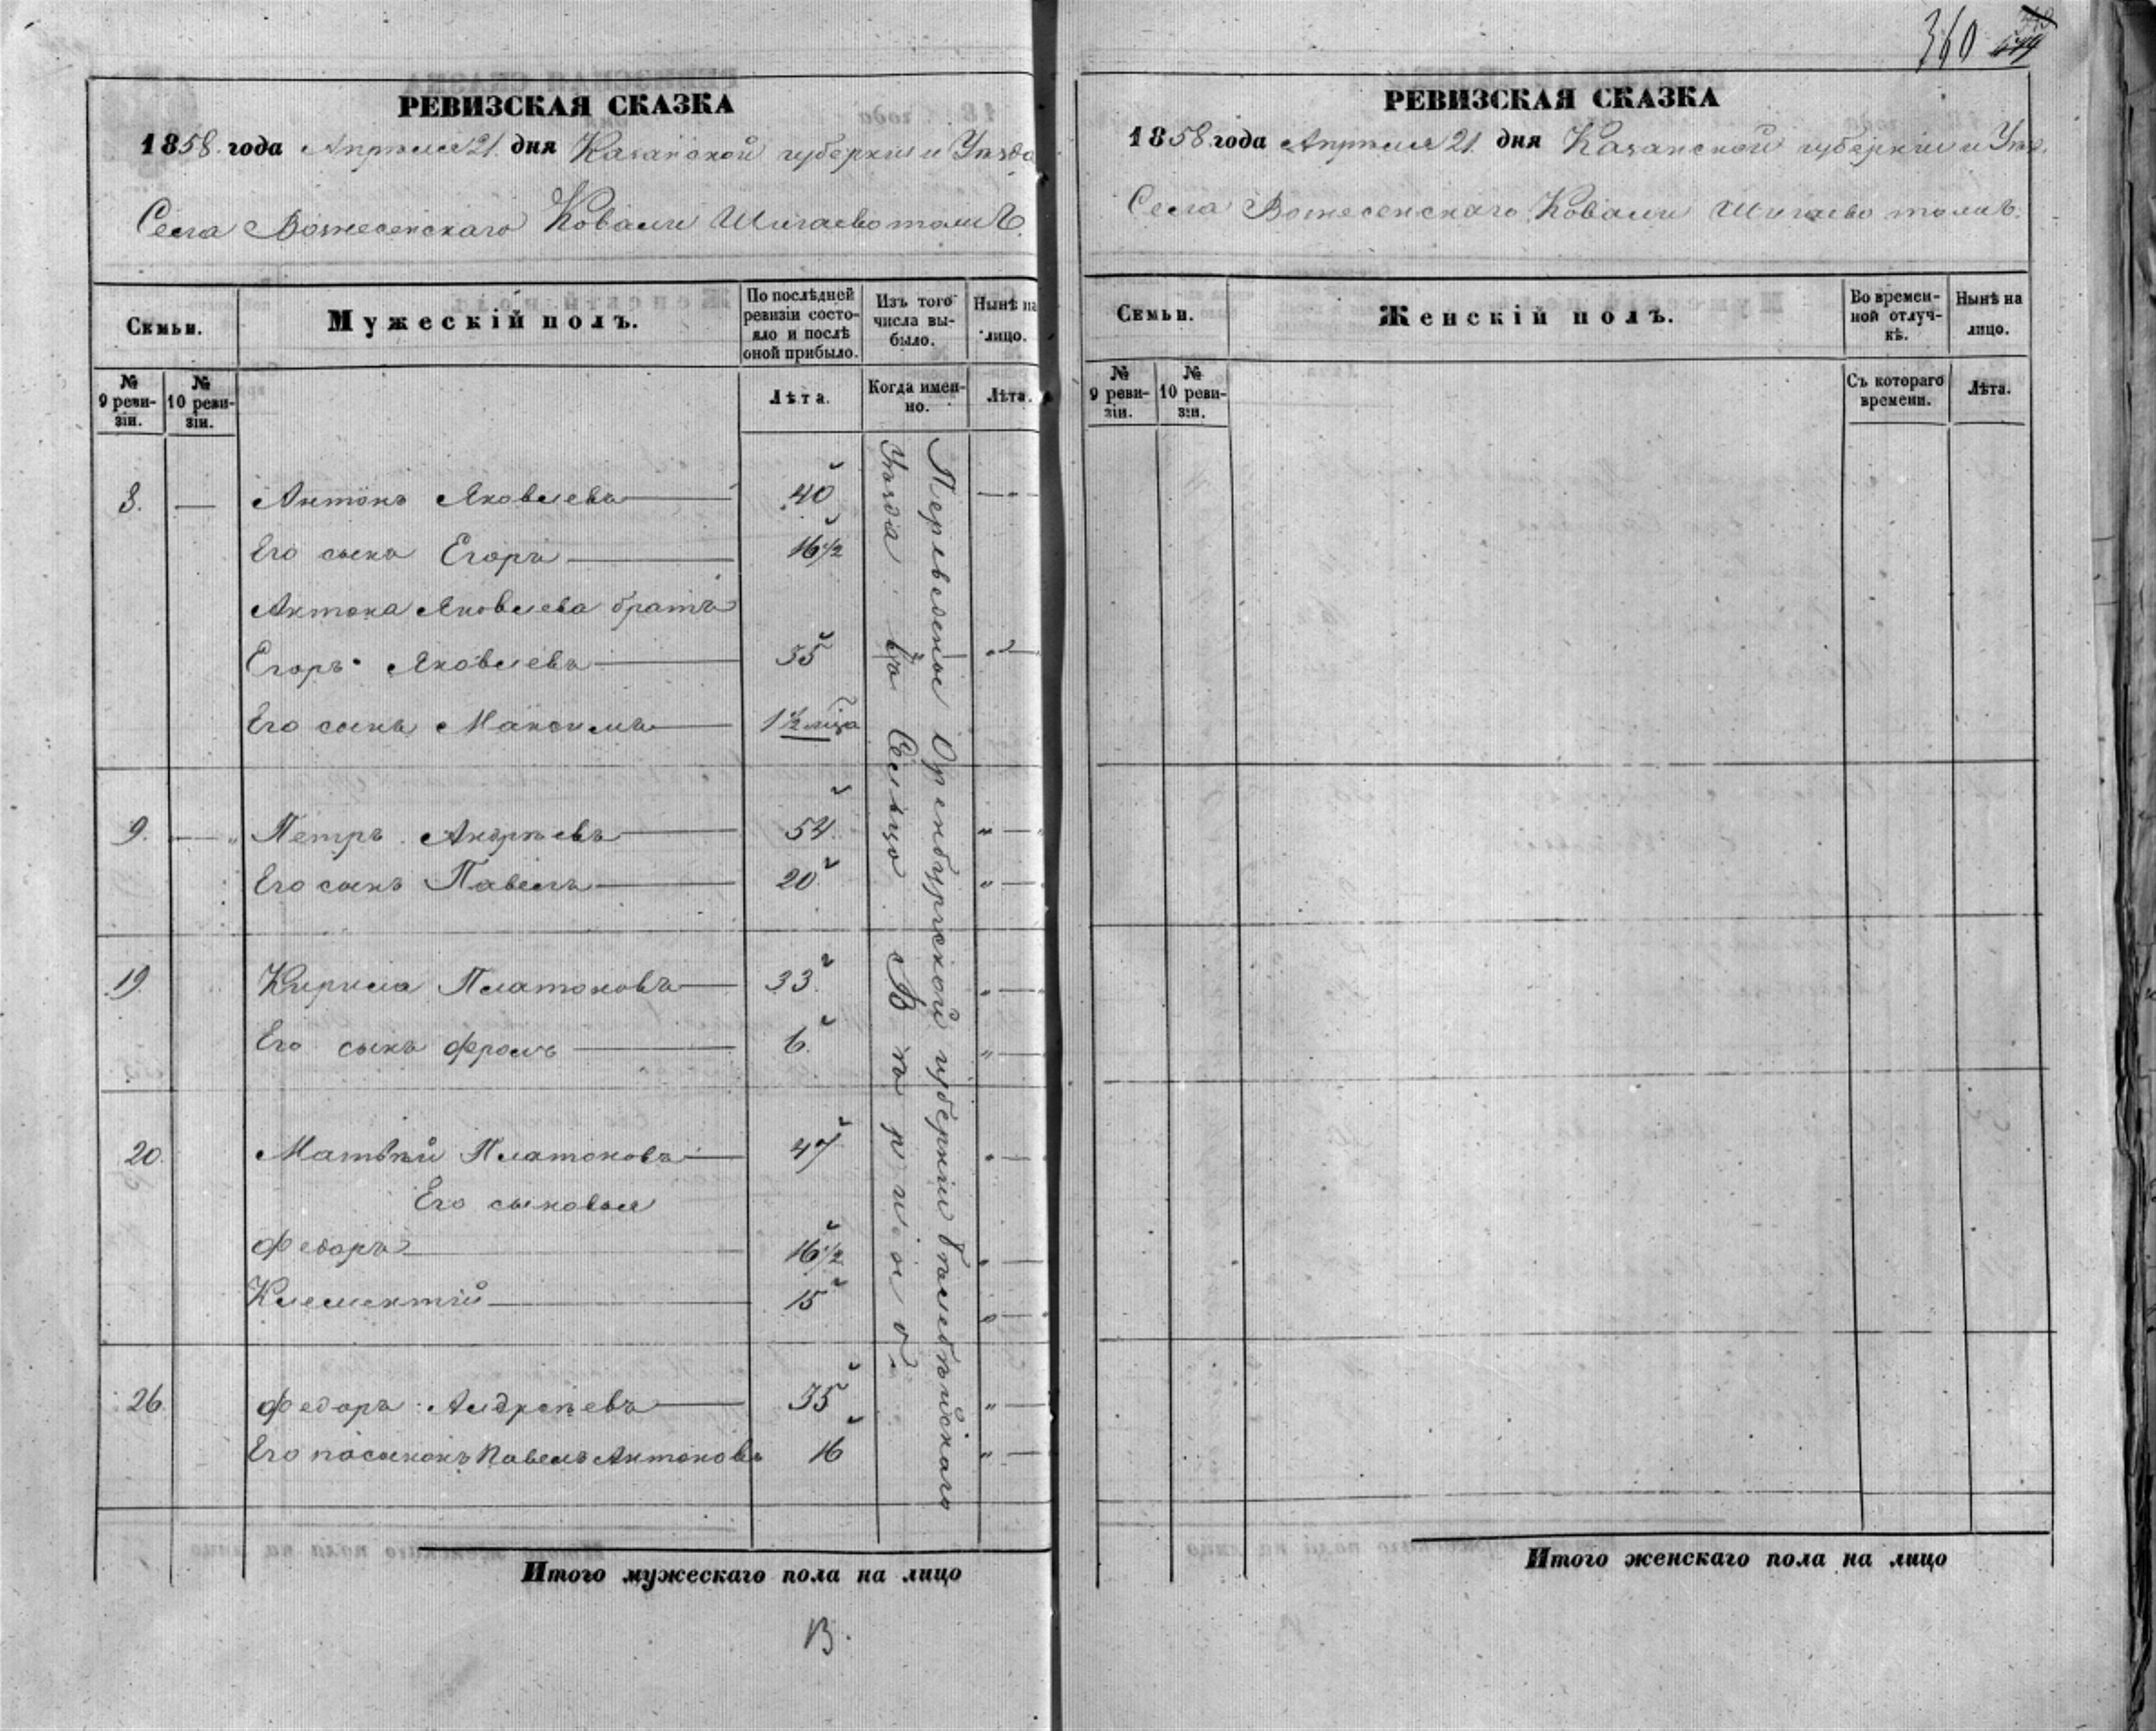 360
РЕВИЗСКАЯ СКАЗКА
1858 года Апреля 21. дня Казанской губернии и Уезда
Села Вознесенскаго Ковали Шигаево тожъ.
Семьи.
Мужескій полъ.
По послѣдней ревизіи состояло и послѣ оной прибыло.
Изъ того числа выбыло.
Нынѣ на лицо.
№ 9 ревизіи.
№ 10 ревизіи.
Лѣта.
Когда именно.
Лѣта.
8. — Антонъ Яковлевъ — 40 —
Его сынъ Егоръ — 16 1/2
Антона Яковлева братъ
Егоръ Яковлевъ — 35 —
Его сынъ Максимъ — 1 1/2 мца
9. — Петръ Андреевъ — 54 " — "
Его сынъ Павелъ — 20 " —
19. Кирила Платоновъ — 33 " —
Его сынъ Фролъ — 6. " —
20. Матвѣй Платоновъ — 47 " —
Его сыновья
Федоръ — 16 1/2 " —
Клементій — 15 " —
26. Федоръ Андреевъ — 35 " —
Его пасынокъ Павелъ Антоновъ 16 " —
Переведены Оренбургской губерніи Белебѣйскаго
Уезда въ Сельцо
Итого мужескаго пола на лицо
В.
РЕВИЗСКАЯ СКАЗКА
1858 года Апреля 21. дня Казанской губерніи и Уез.
Села Вознесенскаго Ковали Шигаево тожъ.
Семьи.
Женскій полъ.
Во временной отлучкѣ.
Нынѣ на лицо.
№ 9 ревизіи.
№ 10 ревизіи.
Съ котораго времени.
Лѣта.
Итого женскаго пола на лицо